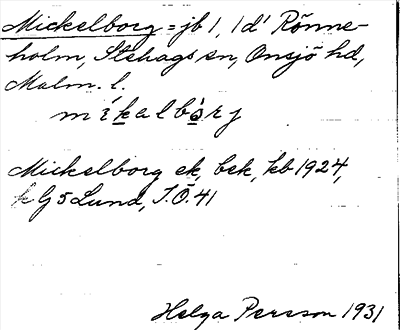 Mickelborg = jb 1, 1 d' Rönne-
holm, Stehags sn, Onsjö hd,
Malm. l.
míkalbòrj
Mickelborg ek, bek, kb 1924,
k G5 Lund, T.Ö. 41
Helga Persson 1931